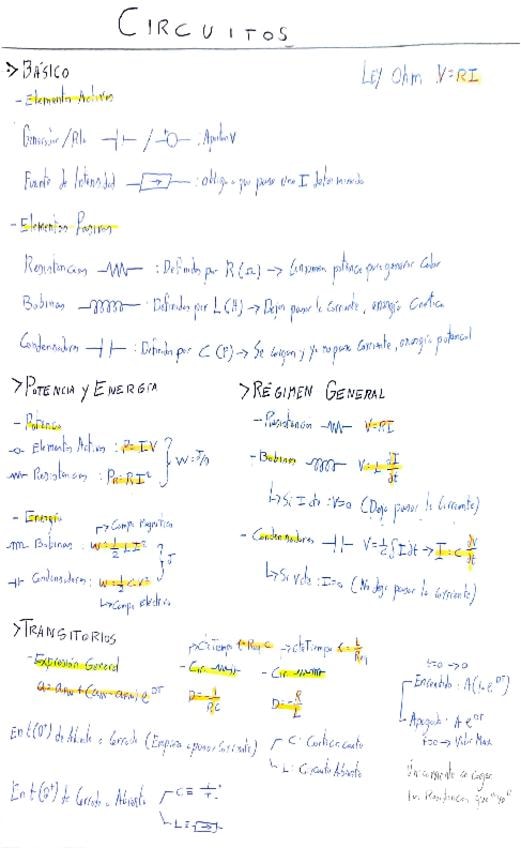 CIRCUITOS
> BÁSICO
LEY Ohm V=RI
- Elementos Activos
Generador/Pila : Aporta V
Fuente de Intensidad : obliga a que pase una I determinada
- Elementos Pasivos
Resistencias : Definidas por R (Ω) → Consumen potencia para generar calor
Bobinas : Definidas por L (H) → Dejan pasar la corriente, energía
Condensadores : Definidos por C (F) → Se cargan y ya no pasa corriente, energía potencial
> POTENCIA Y ENERGIA
- Potencia
Elementos Activos : P=I·V
Resistencias : P=RI²
W = J/s
- Energía
→ Campo Magnético
Bobinas : W=1/2 L I²
Condensadores : W=1/2 C V²
J
↳ Campo Eléctrico
> RÉGIMEN GENERAL
- Resistencias V=RI
- Bobinas V=L dI/dt
↳ Si I cte : V=0 (Deja pasar la corriente)
- Condensadores V=1/2 ∫ I dt → I = C dV/dt
↳ Si V cte : I=0 (No deja pasar la corriente)
> TRANSITORIOS
- Expresión General
- Cir.
- Cir.
D=-1/RC
D=-R/L
t=0 → 0
Encendido : A(1-e^Dt)
Apagado : A e^Dt
t=0 → Valor Max
En t(0⁺) de Abierto a Cerrado (Empieza a pasar Corriente)
C : Cortocircuito
L : Circuito Abierto
En t(0⁺) de Cerrado a Abierto
C =
L =